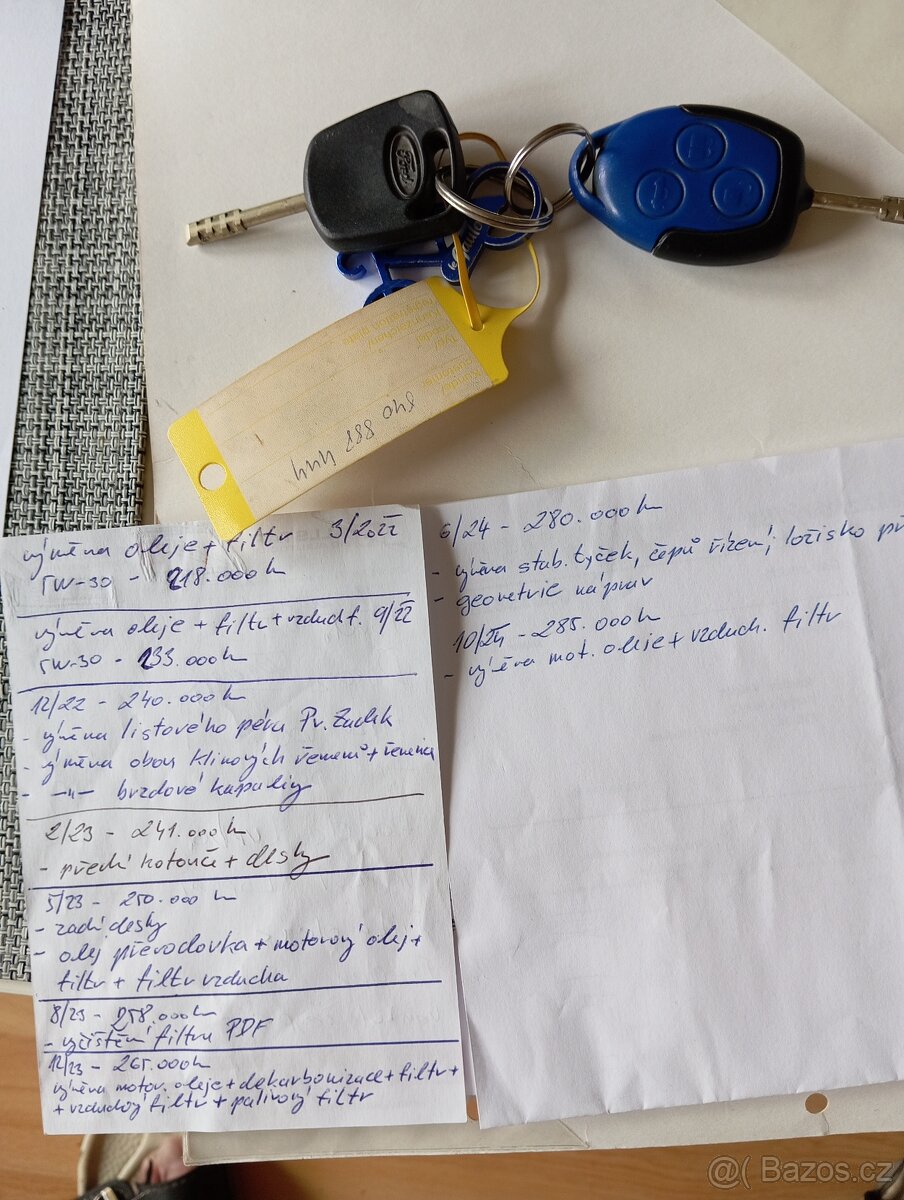 Ford
840 888 444
výměna oleje + filtr 3/2022
5W-30 - 218.000 km
výměna oleje + filtr + vzduch f. 9/22
5W-30 - 233.000 km
12/22 - 240.000 km
- výměna listového péra Pr. Zadek
- výměna obou klínových řemenů + řemenice
- -"- brzdové kapaliny
2/23 - 241.000 km
- přední kotouče + desky
5/23 - 250.000 km
- zadní desky
- olej převodovka + motorový olej +
filtr + filtr vzducha
8/23 - 258.000 km
- vyčištění filtru PDF
12/23 - 265.000 km
výměna motor. oleje + dekarbonizace + filtr +
+ vzduchový filtr + palivový filtr
6/24 - 280.000 km
- výměna stab. tyček, čepů řízení, ložisko
- geometrie náprav
10/24 - 285.000 km
- výměna mot. oleje + vzduch. filtr
@( Bazos.cz